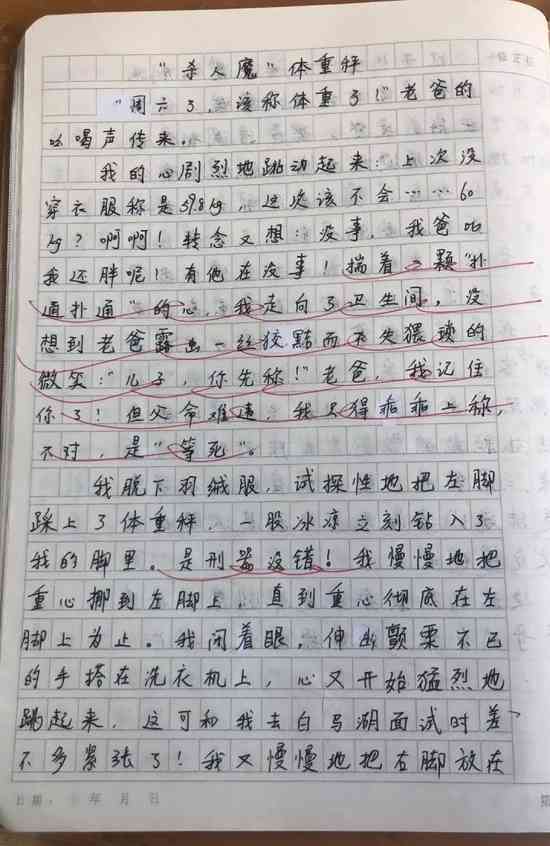 “杀人魔”体重秤
“周六了,该称体重了!”老爸的
吆喝声传来。
我的心剧烈地跳动起来:上次没
穿衣服称是39.8kg,这次该不会……60
kg?啊啊!转念又想:没事,我爸比
我还胖呢!有他在没事!揣着一颗“扑
通扑通”的心,我走向了卫生间,没
想到老爸露出一丝狡黠而不失猥琐的
微笑:“儿子,你先称!”老爸,我记住
你了!但父命难违,我只得乖乖上称,
不对,是“等死”。
我脱下羽绒服,试探性地把左脚
踩上了体重秤,一股冰凉立刻钻入了
我的脚里。是刑器没错!我慢慢地把
重心挪到左脚上,直到重心彻底在左
脚上为止。我闭着眼,伸出颤栗不已
的手搭在洗衣机上,心又开始猛烈地
跳起来,这可和我去白马湖面试时差
不多紧张了!我又慢慢地把右脚放在
日期: 年 月 日
第